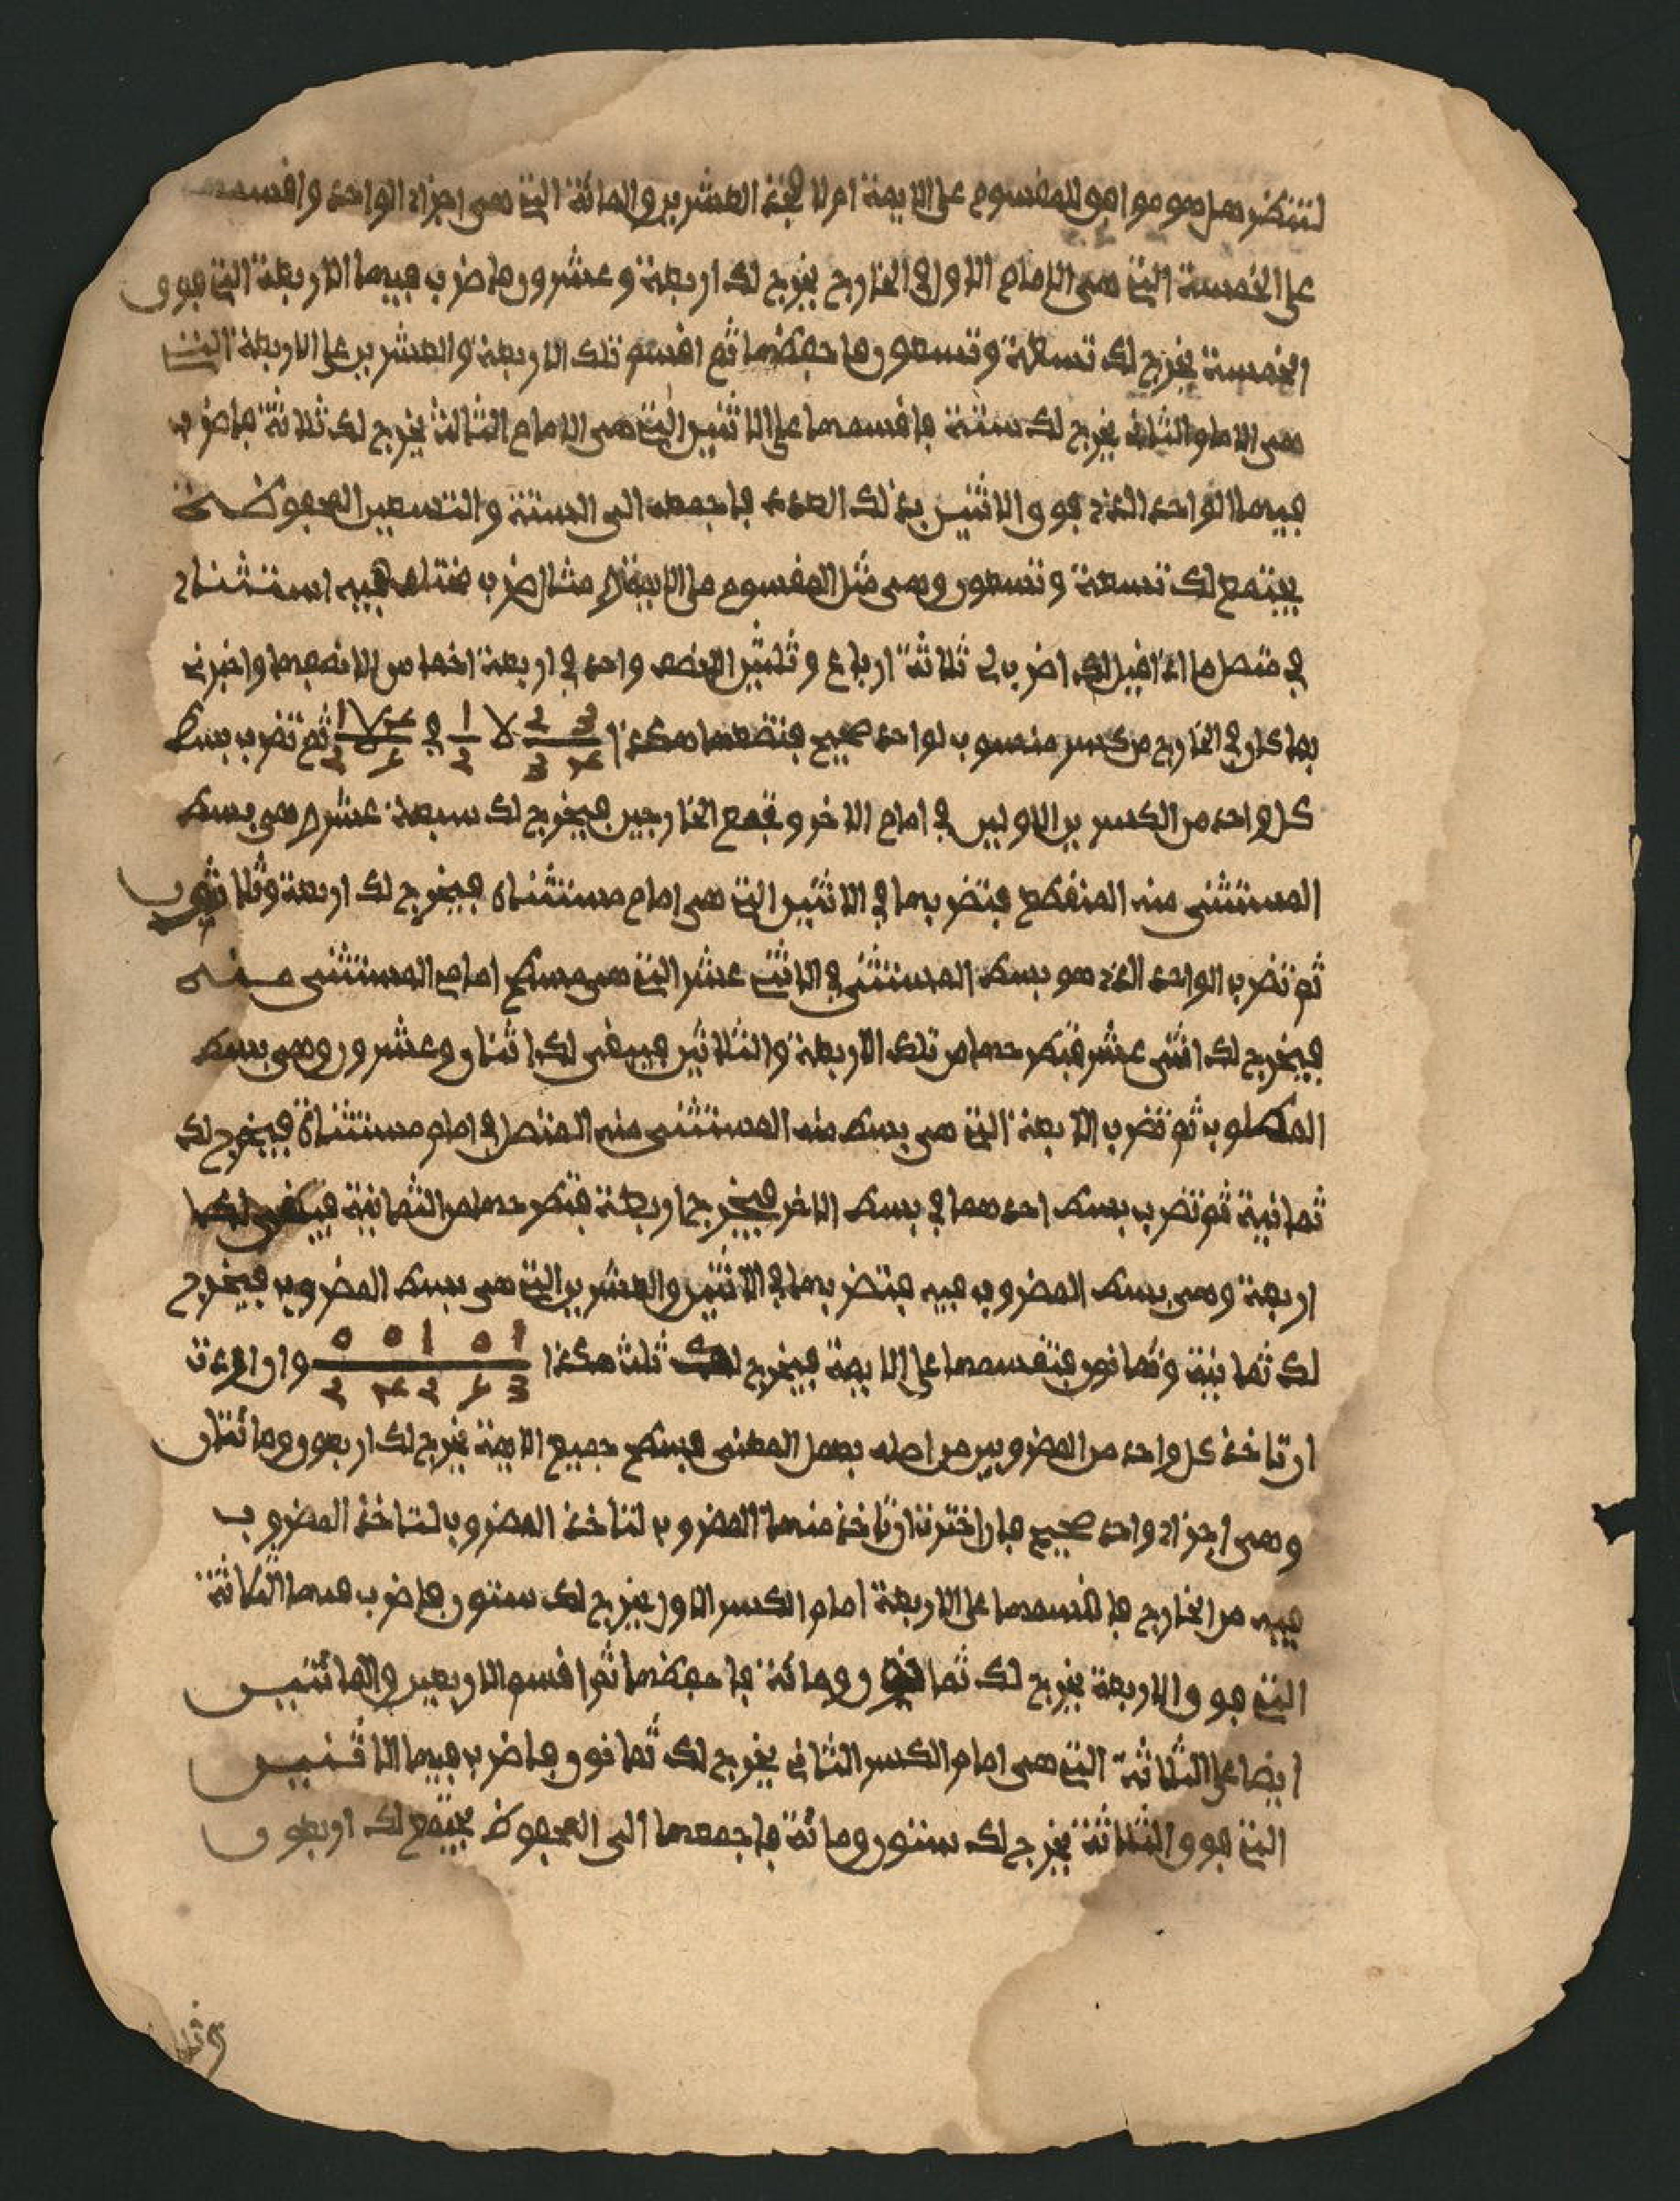 لتنظر هل هو موافق للمقسوم على الايمة ام لا فخذ العشرين والمائة التي هي اجزاء الواحد واقسمها
على الخمسة التي هي الامام الاول في الخارج يخرج لك اربعة وعشرون فاضرب فيها الاربعة التي فوق
الخمسة يخرج لك ستة وتسعون فاحفظها ثم اقسم تلك الاربعة والعشرين على الاربعة التي
هي الامام الثاني يخرج لك ستة فاقسمها على الاثنين التي هي الامام الثالث يخرج لك ثلاثة فاضرب
فيها الواحد الذي فوق الاثنين بذلك العدد فاجمعه الى الستة والتسعين المحفوظة
يجتمع لك تسعة وتسعون وهي مثل المقسوم على الايمة مثال ضرب ما فيه استثناء
في متصل ما اذا قيل لك اضرب لي ثلاثة ارباع وثلثين الا نصف واحد في اربعة اخماس الا نصفها واخبرني
بما كان في الخارج من كسر منسوب لواحد صحيح فتضعها هكذا ثم تضرب بسط
كل واحد من الكسرين الاولين في امام الاخر وتجمع الخارجين فيخرج لك سبعة عشر وهي بسط
المستثنى منه المنقطع فتضربها في الاثنين التي هي امام مستثناه فيخرج لك اربعة وثلاثون
ثم تضرب الواحد الذي هو بسط المستثنى في الاثني عشر التي هي مسطح امام المستثنى منه
فيخرج لك اثنى عشر فتطرحها من تلك الاربعة والثلاثين فيبقى لك اثنان وعشرون وهي بسط
المطلوب ثم تضرب الاربعة التي هي بسط منه المستثنى منه المتصل في امام مستثناه فيخرج لك
ثمانية ثم تضرب بسط احدهما في بسط الاخر فيخرج اربعة فتطرحها من الثمانية فيبقى لك
اربعة وهي بسط المضروب فيه فتضربها في الاثنين والعشرين التي هي بسط المضروب فيخرج
لك ثمانية وثمانون فتقسمها على الايمة فيخرج لك ثلث هكذا وان اردت
ان تاخذ كل واحد من المضروبين من اصله بعمل المعنى فسطح جميع الايمة يخرج لك اربعون ومائتان
وهي اجزاء واحد صحيح فان اخترت ان تاخذ منها المضروب لتاخذ المضروب لتاخذ المضروب
فيه من الخارج فاقسمها على الاربعة امام الكسر الاول يخرج لك ستون فاضرب فيها الثلاثة
التي فوق الاربعة يخرج لك ثمانون ومائة فاحفظها ثم اقسم الاربعين والمائتين
ايضا على الثلاثة التي هي امام الكسر الثاني يخرج لك ثمانون فاضرب فيها الاثنين
التي فوق الثلاثة يخرج لك ستون ومائة فاجمعها الى المحفوظ يجتمع لك اربعون